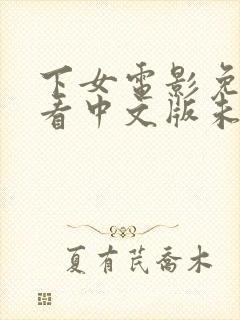 下女电影免
看中文版未
夏有芪乔木